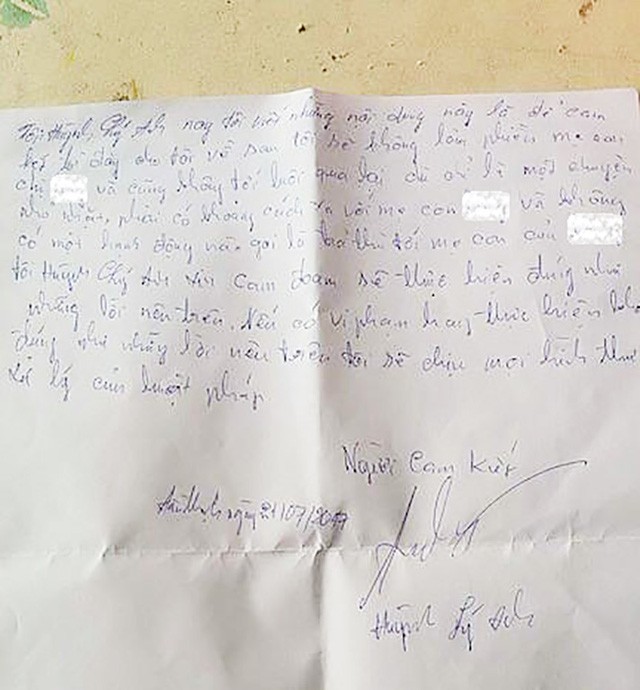 Tôi Huỳnh Lý Anh nay tôi viết những nội dung này là để cam
kết từ đây cho tới về sau tôi sẽ không làm phiền mẹ con
chị và cũng không tới lui qua lại dù chỉ là một chuyện
nhỏ nhặt, phải có khoảng cách xa với mẹ con và không
có một hành động nào gọi là trả thù tới mẹ con của
tôi Huỳnh Lý Anh xin cam đoan sẽ thực hiện đúng như
những lời nêu trên. Nếu có vi phạm hay thực hiện
đúng như những lời nêu trên tôi sẽ chịu mọi hình thức
xử lý của luật pháp
Người Cam Kết
ngày 21/07/2017
Huỳnh Lý Anh